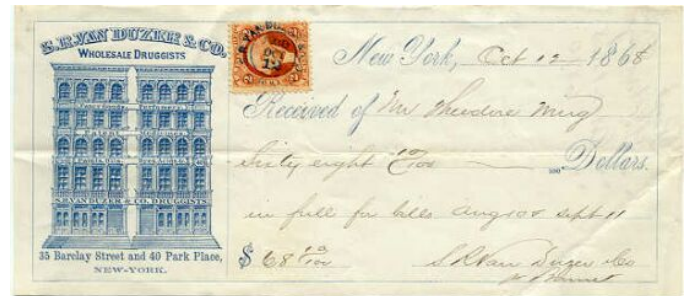 S. R. VAN DUZER & CO.
WHOLESALE DRUGGISTS
S.R.VAN DUZER & CO. DRUGGISTS
35 Barclay Street and 40 Park Place,
NEW-YORK.
OCT
12
New York, Oct 12 1868
Received of Mr Theodore
Sixty eight 10/100 Dollars.
in full for bills Aug 10 & Sept 11
$ 68 10/100
S R Van Duzer & Co